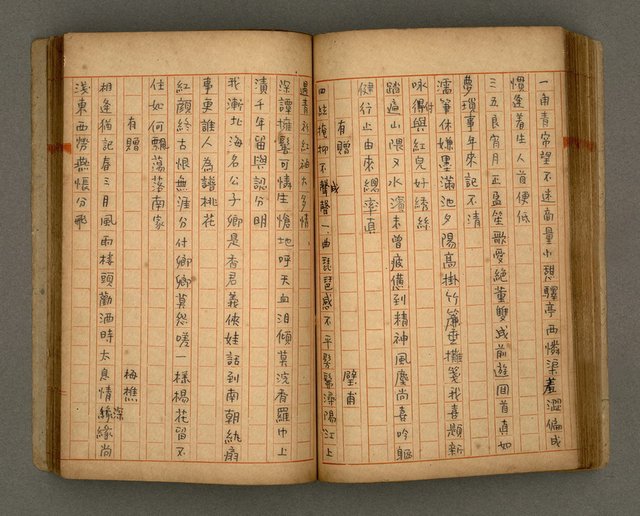 一角青帘望不迷商量小憩驛亭西憐渠羞澀偏成
慣逢着生人首便低
三五良宵月正盈笙歌愛絕董雙成前遊回首真如
夢瑣事年來記不清
濡筆休嫌墨滿池夕陽高掛竹簾垂擁箋我喜題新
咏付與紅兒好綉絲
踏遍山隈又水濱未曾疲憊到精神風塵尚喜吟軀
健行止由來總率真
有贈 壁甫
四絃掩抑不成聲一曲琵琶感不平彷彿潯陽江上
遇青衫紅淚太多情
深譚擁髻可憐生愴地呼天血淚傾莫浣香羅巾上
漬千年留與認分明
我漸北海名公子卿是香君義俠娃話到南朝紈扇
事更誰人為譜桃花
紅顏終古恨無涯分付卿卿莫怨嗟一樣楊花留不
住如何飄蕩落南家
有贈 梅樵
相逢猶記春三月風雨樓頭勸酒時太息情深緣尚
淺東西勞燕悵分飛